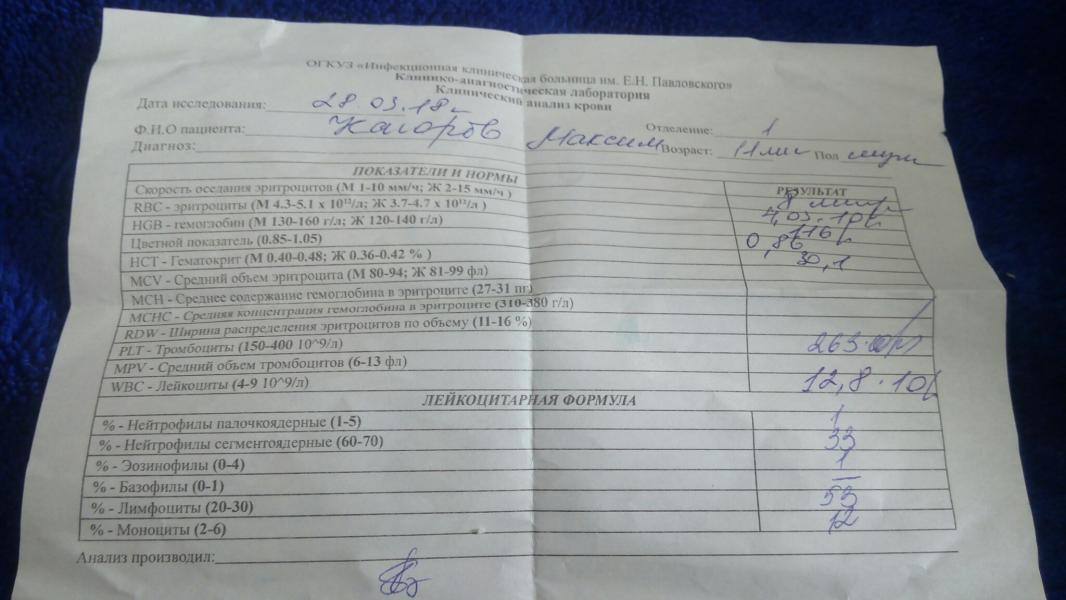 ОГКУЗ «Инфекционная клиническая больница им. Е.Н. Павловского»
Клинико-диагностическая лаборатория
Клинический анализ крови
Дата исследования: 28.03.18г
Ф.И.О пациента: Максим Отделение: 1
Диагноз: Возраст: Пол муж
ПОКАЗАТЕЛИ И НОРМЫ РЕЗУЛЬТАТ
Скорость оседания эритроцитов (М 1-10 мм/ч; Ж 2-15 мм/ч ) 8
RBC - эритроциты (М 4.3-5.1 х 10¹²/л; Ж 3.7-4.7 х 10¹²/л ) 4,03·10
HGB - гемоглобин (М 130-160 г/л; Ж 120-140 г/л) 116
Цветной показатель (0.85-1.05) 0,86
НСТ - Гематокрит (М 0.40-0.48; Ж 0.36-0.42 % ) 30,1
MCV - Средний объем эритроцита (М 80-94; Ж 81-99 фл)
МСН - Среднее содержание гемоглобина в эритроците (27-31 пг)
МСНС - Средняя концентрация гемоглобина в эритроците (310-380 г/л)
RDW - Ширина распределения эритроцитов по объему (11-16 %)
PLT - Тромбоциты (150-400 10^9/л) 263
MPV - Средний объем тромбоцитов (6-13 фл)
WBC - Лейкоциты (4-9 10^9/л) 12,8·10
ЛЕЙКОЦИТАРНАЯ ФОРМУЛА
% - Нейтрофилы палочкоядерные (1-5) 1
% - Нейтрофилы сегментоядерные (60-70) 33
% - Эозинофилы (0-4) 1
% - Базофилы (0-1) —
% - Лимфоциты (20-30) 53
% - Моноциты (2-6) 12
Анализ производил: